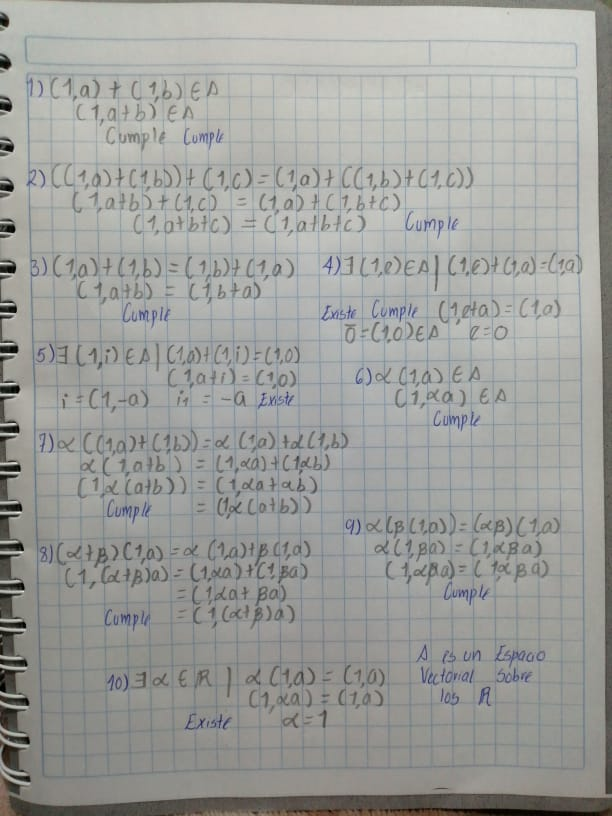 1) (1,a) + (1,b) ∈ A
(1,a+b) ∈ A
Cumple Cumple
2) ((1,a)+(1,b))+(1,c) = (1,a)+((1,b)+(1,c))
(1,a+b)+(1,c) = (1,a)+(1,b+c)
(1,a+b+c) = (1,a+b+c) Cumple
3) (1,a)+(1,b) = (1,b)+(1,a)
(1,a+b) = (1,b+a)
Cumple
4) ∃ (1,e) ∈ A | (1,e)+(1,a)=(1,a)
Existe Cumple (1,e+a) = (1,a)
0̅ = (1,0) ∈ A e=0
5) ∃ (1,i) ∈ A | (1,a)+(1,i)=(1,0)
(1,a+i)=(1,0)
i = (1,-a) i₁ = -a Existe
6) α (1,a) ∈ A
(1,αa) ∈ A
Cumple
7) α ((1,a)+(1,b)) = α (1,a)+α(1,b)
α(1,a+b) = (1,αa)+(1,αb)
(1,α(a+b)) = (1,αa+αb)
Cumple = (1,α(a+b))
8) (α+β)(1,a) = α (1,a)+β(1,a)
(1,(α+β)a) = (1,αa)+(1,βa)
= (1,αa+βa)
Cumple = (1,(α+β)a)
9) α(β(1,a)) = (αβ)(1,a)
α(1,βa) = (1,αβa)
(1,αβa) = (1,αβa)
Cumple
10) ∃ α ∈ ℝ | α (1,a) = (1,a)
(1,αa) = (1,a)
Existe α = 1
A es un Espacio
Vectorial Sobre
los ℝ